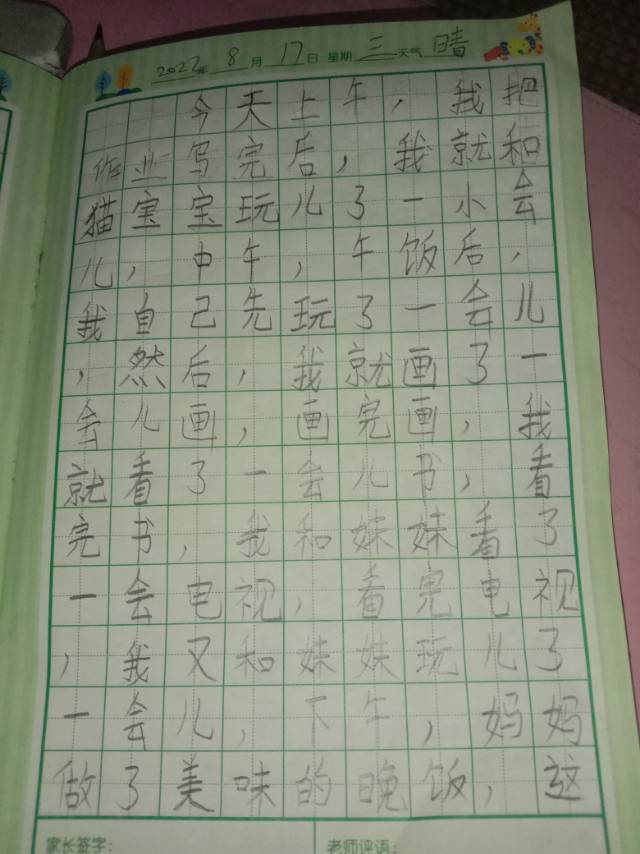 2022年 8月 17日 星期 三 天气 晴
今天上午，我把
作业写完后，我就和
猫宝宝玩儿了一小会
儿，中午，午饭后，
我自己先玩了一会儿
，然后，我就画了一
会儿画，画完画，我
就看了一会儿书，看
完书，我和妹妹看了
一会电视，看完电视
，我又和妹妹玩儿了
一会儿，下午，妈妈
做了美味的晚饭，这
家长签字： 老师评语：